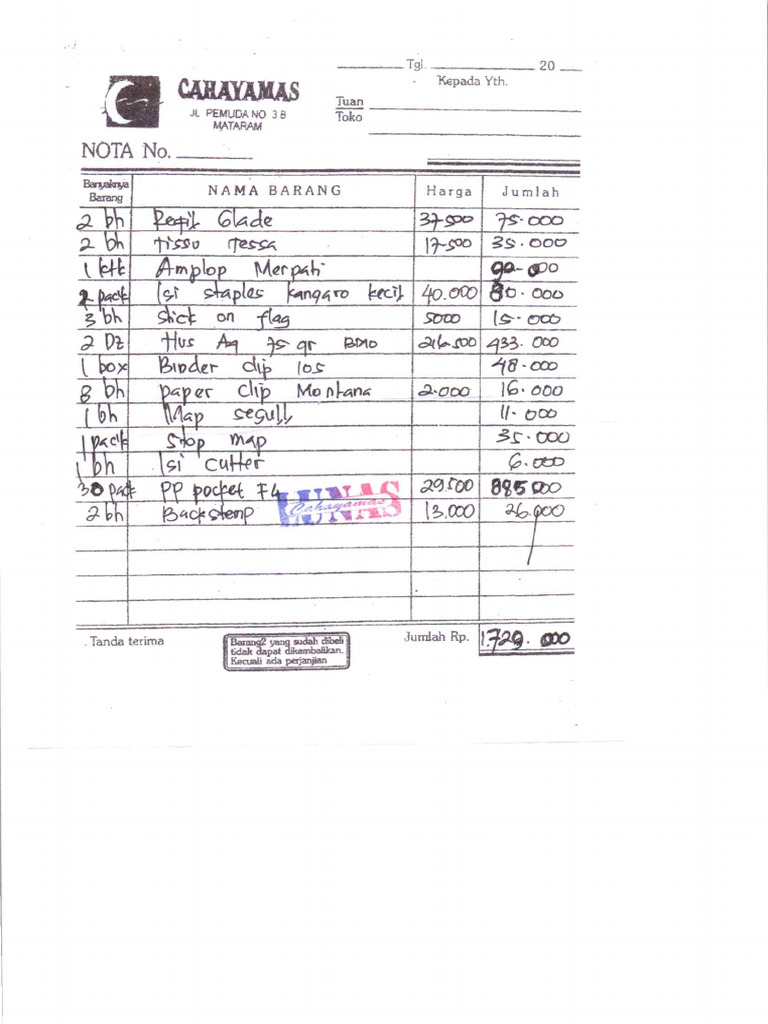 Tgl. 20
CAHAYAMAS
JL PEMUDA NO 3 B
MATARAM
Kepada Yth.
Tuan
Toko
NOTA No.
Banyaknya Barang NAMA BARANG Harga Jumlah
2 bh Glade 37500 75.000
2 bh tissu tessa 17.500 35.000
1 ktk Amplop Merpati 90.000
2 pack Isi staples kangaro kecil 40.000 80.000
3 bh stick on flag 5000 15.000
2 Dz Hvs A4 75 gr 216.500 433.000
1 box Binder clip 105 48.000
8 bh paper clip Montana 2.000 16.000
1 bh Map segull 11.000
1 pack Stop map 35.000
1 bh Isi cutter 6.000
30 pack PP pocket F4 29.500 885500
2 bh 13.000 26.000
LUNAS
Cahayamas
Tanda terima
Barang2 yang sudah dibeli
tidak dapat dikembalikan.
Kecuali ada perjanjian
Jumlah Rp. 1.729.000